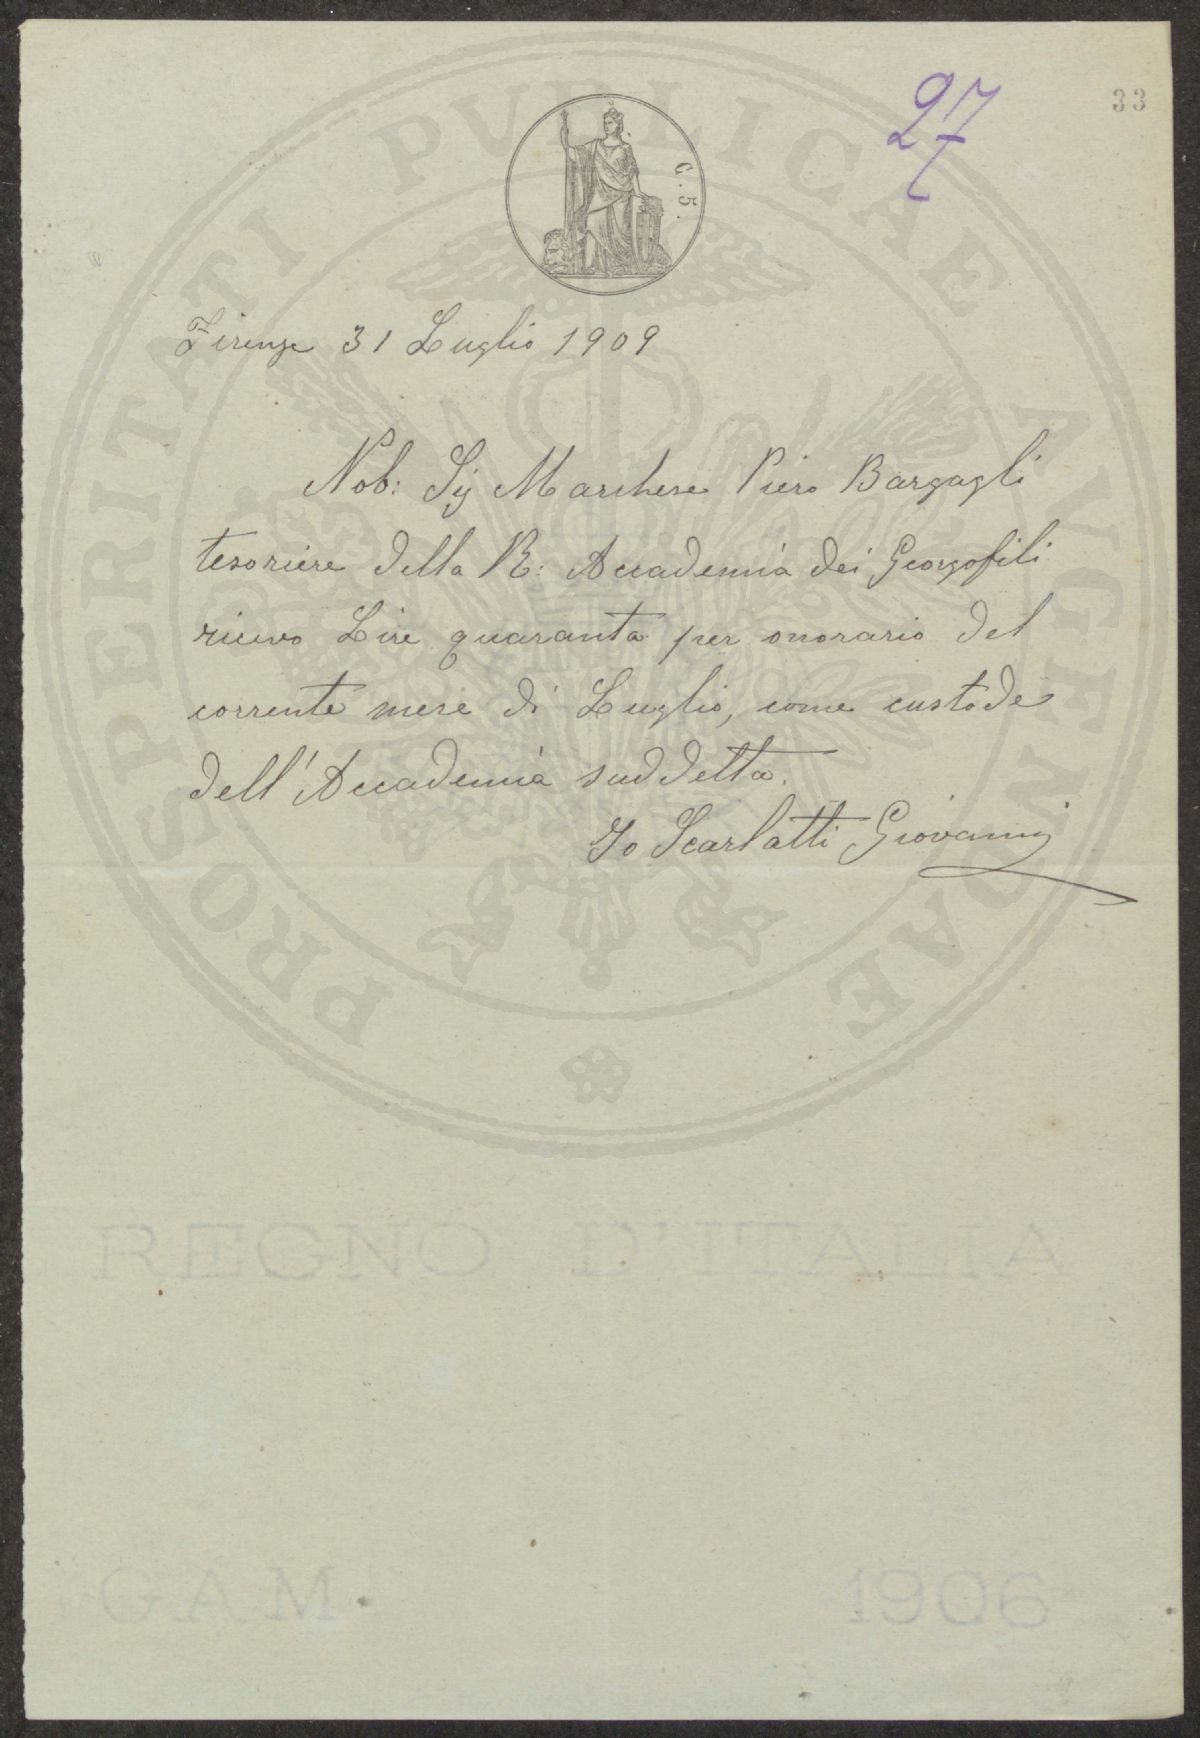 27
33
C. 5.
PROSPERITATI PVBLICAE AVGENDAE
Firenze 31 Luglio 1909
Nob: Sig Marchese Piero Bargagli
tesoriere della R: Accademia dei Georgofili
ricevo Lire quaranta per onorario del
corrente mese di Luglio, come custode
dell'Accademia suddetta.
Io Scarlatti Giovanni
REGNO D'ITALIA
GAM 1906